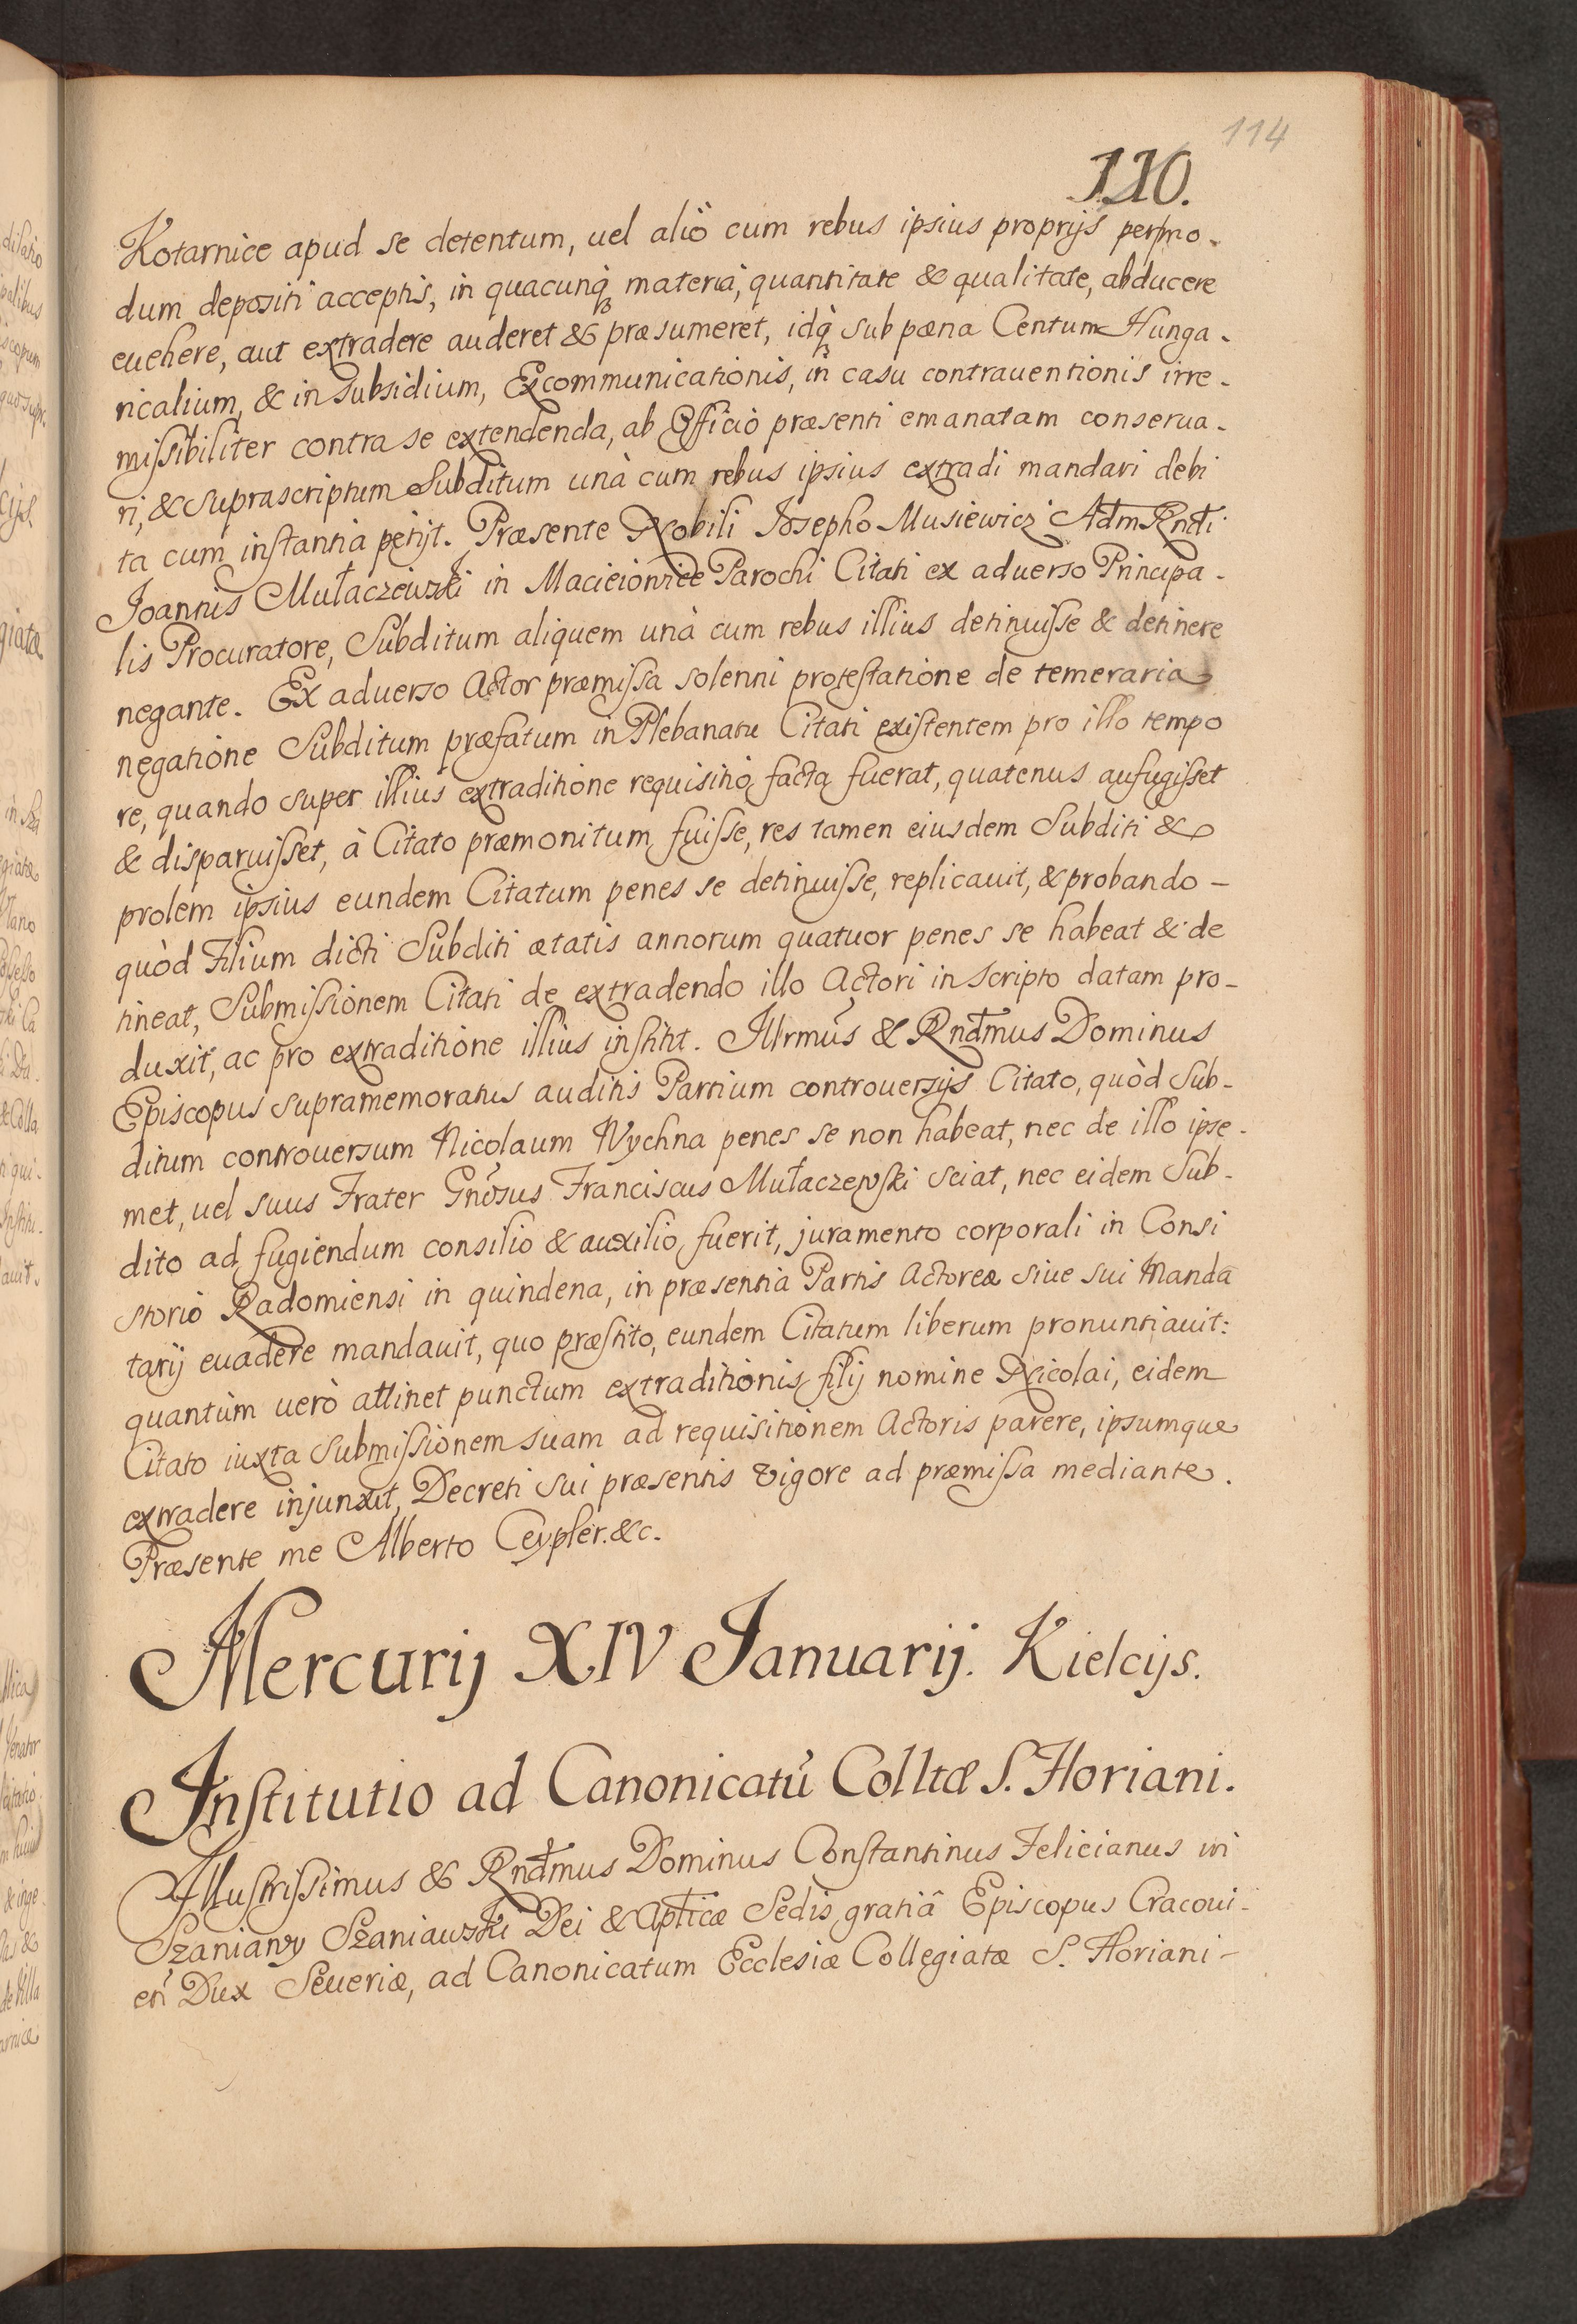 114
110.
Kotarnice apud se detentum, uel aliò cum rebus ipsius proprijs per mo-
dum depositi acceptis, in quacunq; materia, quantitate & qualitate, abducere
euehere, aut extradere auderet & præsumeret, idq; sub pœna Centum Hunga-
ricalium, & in subsidium, Excommunicationis, in casu contrauentionis irre-
missibiliter contra se extendenda, ab Officio præsenti emanatam conserua-
ri, & suprascriptum Subditum unà cum rebus ipsius extradi mandari debi
ta cum instantia petijt. Præsente Nobili Iosepho Musiewicz Adm Rndi
Joannis Mułaczewski in Macieiowice Parochi Citati ex aduerso Principa-
lis Procuratore, Subditum aliquem unà cum rebus illius detinuisse & detinere
negante. Ex aduerso Actor præmissa solenni protestatione de temeraria
negatione Subditum præfatum in Plebanatu Citati existentem pro illo tempo
re, quando super illius extraditione requisitio facta fuerat, quatenus aufugisset
& disparuisset, à Citato præmonitum fuisse, res tamen eiusdem Subditi &
prolem ipsius eundem Citatum penes se detinuisse, replicauit, & probando -
quòd Filium dicti Subditi ætatis annorum quatuor penes se habeat & de
tineat, Submissionem Citati de extradendo illo Actori in scripto datam pro-
duxit, ac pro extraditione illius institit. Illrmus & Rndmus Dominus
Episcopus supramemoratus auditis Partium controuersijs Citato, quòd Sub-
ditum controuersum Nicolaum Wychna penes se non habeat, nec de illo ipse-
met, uel suus Frater Gnosus Franciscus Mułaczewski sciat, nec eidem Sub-
dito ad fugiendum consilio & auxilio fuerit, juramento corporali in Consi
storio Radomiensi in quindena, in præsentia Partis Actoreæ siue sui Manda
tarij euadere mandauit, quo præstito, eundem Citatum liberum pronuntiauit:
quantùm uerò attinet punctum extraditionis filij nomine Nicolai, eidem
Citato iuxta Submissionem suam ad requisitionem Actoris parere, ipsumque
extradere injunxit, Decreti sui præsentis vigore ad præmissa mediante.
Præsente me Alberto Ceypler. &c.
Mercurij XIV Januarij. Kielcijs.
Institutio ad Canonicatũ Colltæ S. Floriani.
Illustrissimus & Rndmus Dominus Constantinus Felicianus in
Szaniawy Szaniawski Dei & Aplicæ Sedis gratiâ Episcopus Cracoui-
en Dux Seueriæ, ad Canonicatum Ecclesiæ Collegiatæ S. Floriani -